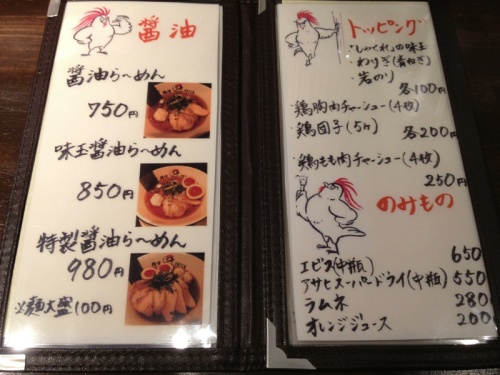 醤油
醤油らーめん
750円
味玉醤油らーめん
850円
特製醤油らーめん
980円
※麺大盛100円
トッピング
・「しゃくれ」の味玉
・わりぎ(青ねぎ)
・岩のり
各100円
・鶏胸肉チャーシュー(4枚)
・鶏団子(5ヶ)
各200円
・鶏もも肉チャーシュー(4枚)
250円
のみもの
エビス(中瓶) 650
アサヒスーパードライ(中瓶) 550
ラムネ 280
オレンジジュース 200